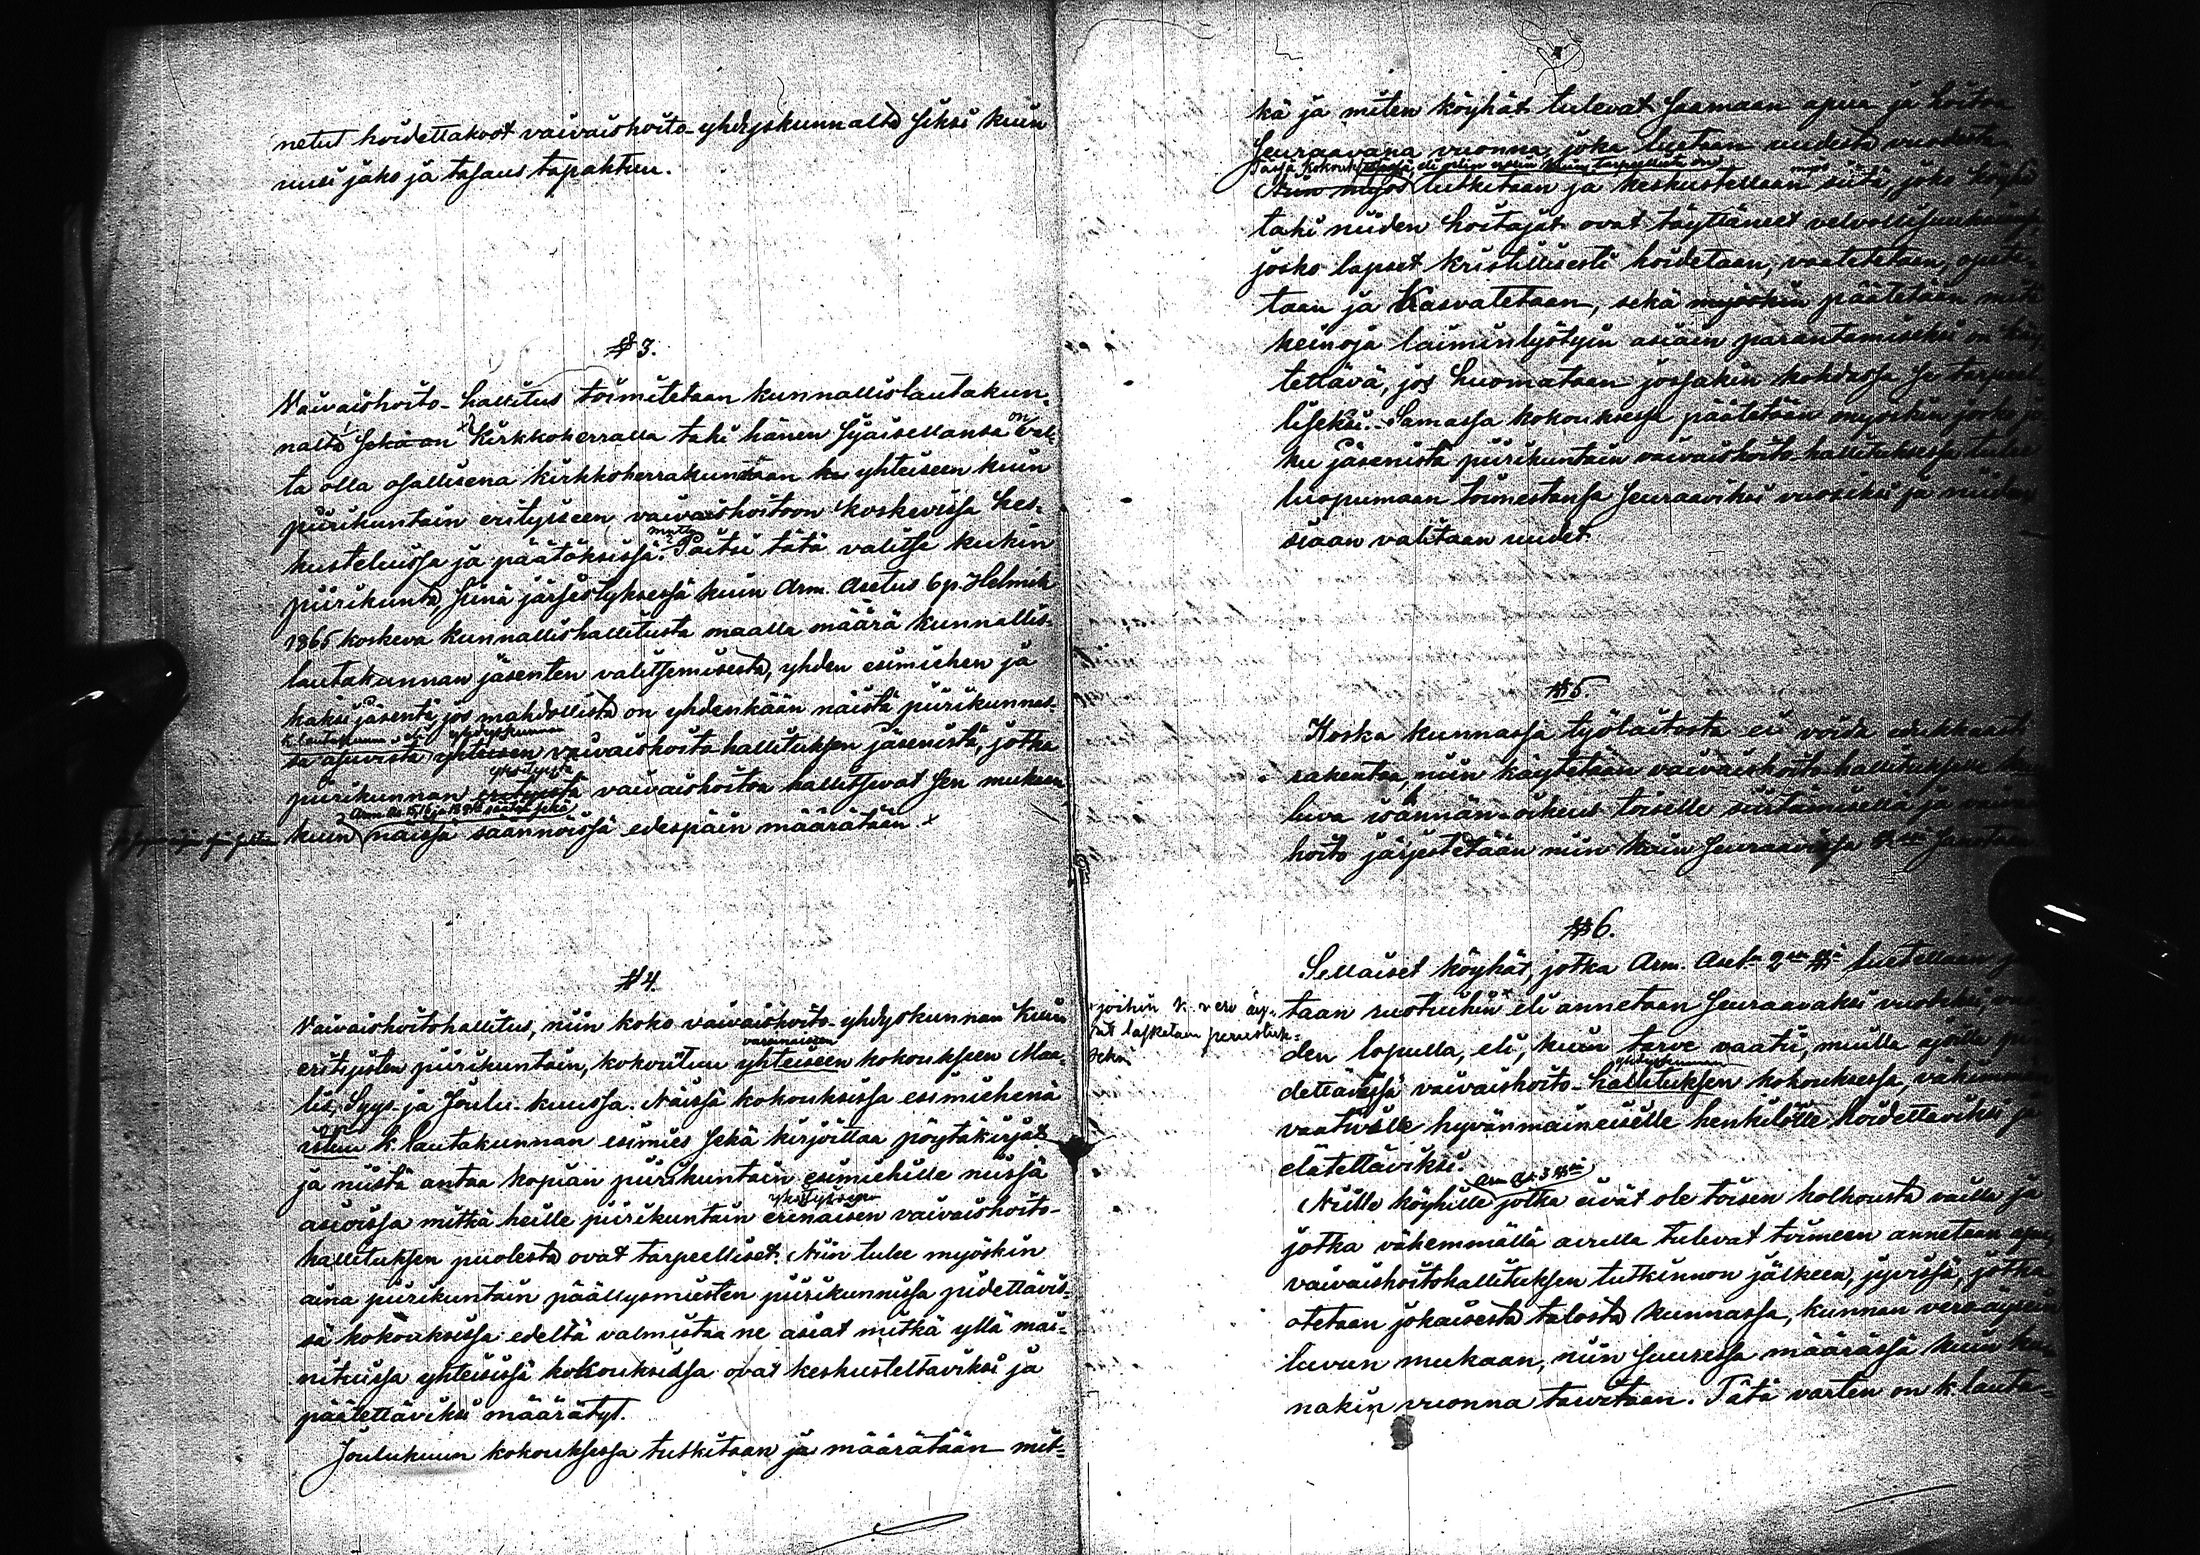 netut hoidettakoot vaivaishoito-yhdyskunnalta siksi kuin
uusi jako ja tasaus tapahtuu.
§ 3.
Vaivaishoito-hallitus toimitetaan kunnallislautakun-
nalta sekä on Kirkkoherralla tahi hänen sijaisellansa on val-
ta olla osallisena kirkkoherrakuntaan yhteiseen kuin
piirikuntain erityiseen vaivaishoitoon koskevissa kes-
kusteluissa ja päätöksissä. mutta Paitsi tätä valitse kukin
piirikunta, siinä järjestyksessä kuin Arm. Asetus 6 p. Helmik
1865 koskeva kunnallishallitusta maalla määrä kunnallis-
lautakunnan jäsenten valitsemisesta, yhden esimiehen ja
kaksi jäsentä, jos mahdollista on yhdenkään näistä piirikunnas-
k. lautakunnan eli yhdyskunnan
sa asuvista yhteisen vaivaishoito-hallituksen jäsenistä, jotka
yksityistä
piirikunnan erityistä vaivaishoitoa hallitsevat sen mukaan
kuin näissä säännöissä edespäin määrätään. x
§ 4.
Vaivaishoitohallitus, niin koko vaivaishoito-yhdyskunnan kuin
varsinaiseen
eritysten piirikuntain, kokountuu yhteiseen kokoukseen Maa-
lis, Syys ja Joulu-kuussa. Näissä kokouksissa esimiehenä
istuu k. lautakunnan esimies sekä kirjoittaa pöytäkirjat
ja niistä antaa kopian piirikuntain esimiehille niissä
yksityksen
asioissa mitkä heille piirikuntain erinäisen vaivaishoito-
hallituksen puolesta ovat tarpeelliset. Niin tulee myöskin
aina piirikuntain päällysmiesten piirikunnissa pidettävis-
sä kokouksissa edeltä valmistaa ne asiat mitkä yllä mai-
nituissa yhteisissä kokouksissa ovat keskusteltaviksi ja
päätettäviksi määrätyt.
Joulukuun kokouksessa tutkitaan ja määrätään mit-
kä ja miten köyhät tulevat saamaan apua ja hoitoa
seuraavana vuonna, joka luetaan uudesta vuodesta.
Niin myös tutkitaan ja keskustellaan siitä, joko
tahi niiden hoitajat ovat täyttäneet
josko lapset kristillisesti hoidetaan, vaatetetaan, opete-
taan ja Kasvatetaan, sekä myöskin päätetään mitä
keinoja laiminlyötyin asiain parantamiseksi on käy-
tettävä, jos huomataan jossakin kohdassa se tarpeel-
liseksi. Samassa kokouksessa päätetään myöskin joko
ku jäsenistä piirikuntain vaivaishoito-hallituksessa tulee
luopumaan toimestansa seuraaviksi vuosiksi ja niiden
siaan valitaan uudet.
§ 5.
Koska kunnassa työlaitosta ei voida
rakentaa, niin käytetään vaivaishoito-hallituksen
luva isännän-oikeus toiselle siirtämisellä ja
hoito järjestetään niin kuin seuraavissa
§ 6.
Sellaiset köyhät, jotka Arm. Aset. 2 §. luetellaan
x joihin k. vero äy-
rit lasketaan perustuk-
seksi
taan ruotuihin x eli annetaan seuraavaksi vuodeksi,
den lopulla, eli, kuin tarve vaatii, muulla ajalla pi-
yhdyskunnan
dettävissä vaivaishoito-hallituksen kokouksessa, vähimmän
vaativalle hyvänmaineiselle henkilölle hoidettaviksi ja
elätettäviksi.
Arm. As. 3 §.
Niille köyhille jotka eivät ole toisen holhousta vailla ja
jotka vähemmällä avulla tulevat toimeen annetaan apua,
vaivaishoitohallituksen tutkinnon jälkeen, jyvissä, jotka
otetaan jokaisesta talosta kunnassa, kunnan veroäyrein
luvun mukaan, niin suuressa määrässä kuin kun-
nakin vuonna tarvitaan. Tätä varten on k. lauta-